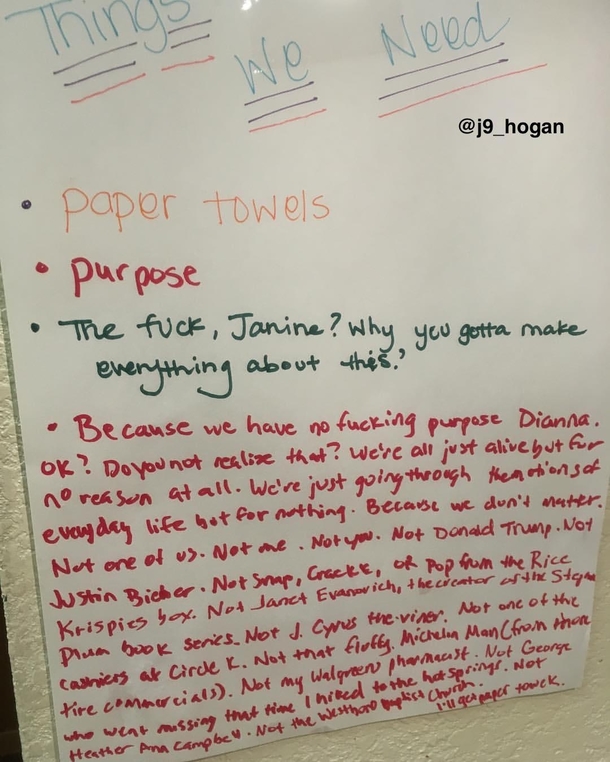 Things
We Need
@j9_hogan
• paper towels
• purpose
• The fuck, Janine? Why you gotta make
everything about this?
• Because we have no fucking purpose Dianna.
OK? Do you not realize that? We're all just alive but for
no reason at all. We're just going through the motions of
everyday life but for nothing. Because we don't matter.
Not one of us. Not me. Not you. Not Donald Trump. Not
Justin Bieber. Not Snap, Crackle, or Pop from the Rice
Krispies box. Not Janet Evanovich, the creator of the Stephanie
Plum book series. Not J. Cyrus the viner. Not one of the
cashiers at Circle K. Not that fluffy Michelin Man (from those
tire commercials). Not my Walgreens pharmacist. Not George
who went missing that time I hiked to the hot springs. Not
Heather Ann Campbell. Not the Westboro Baptist Church.
I'll get paper towels.